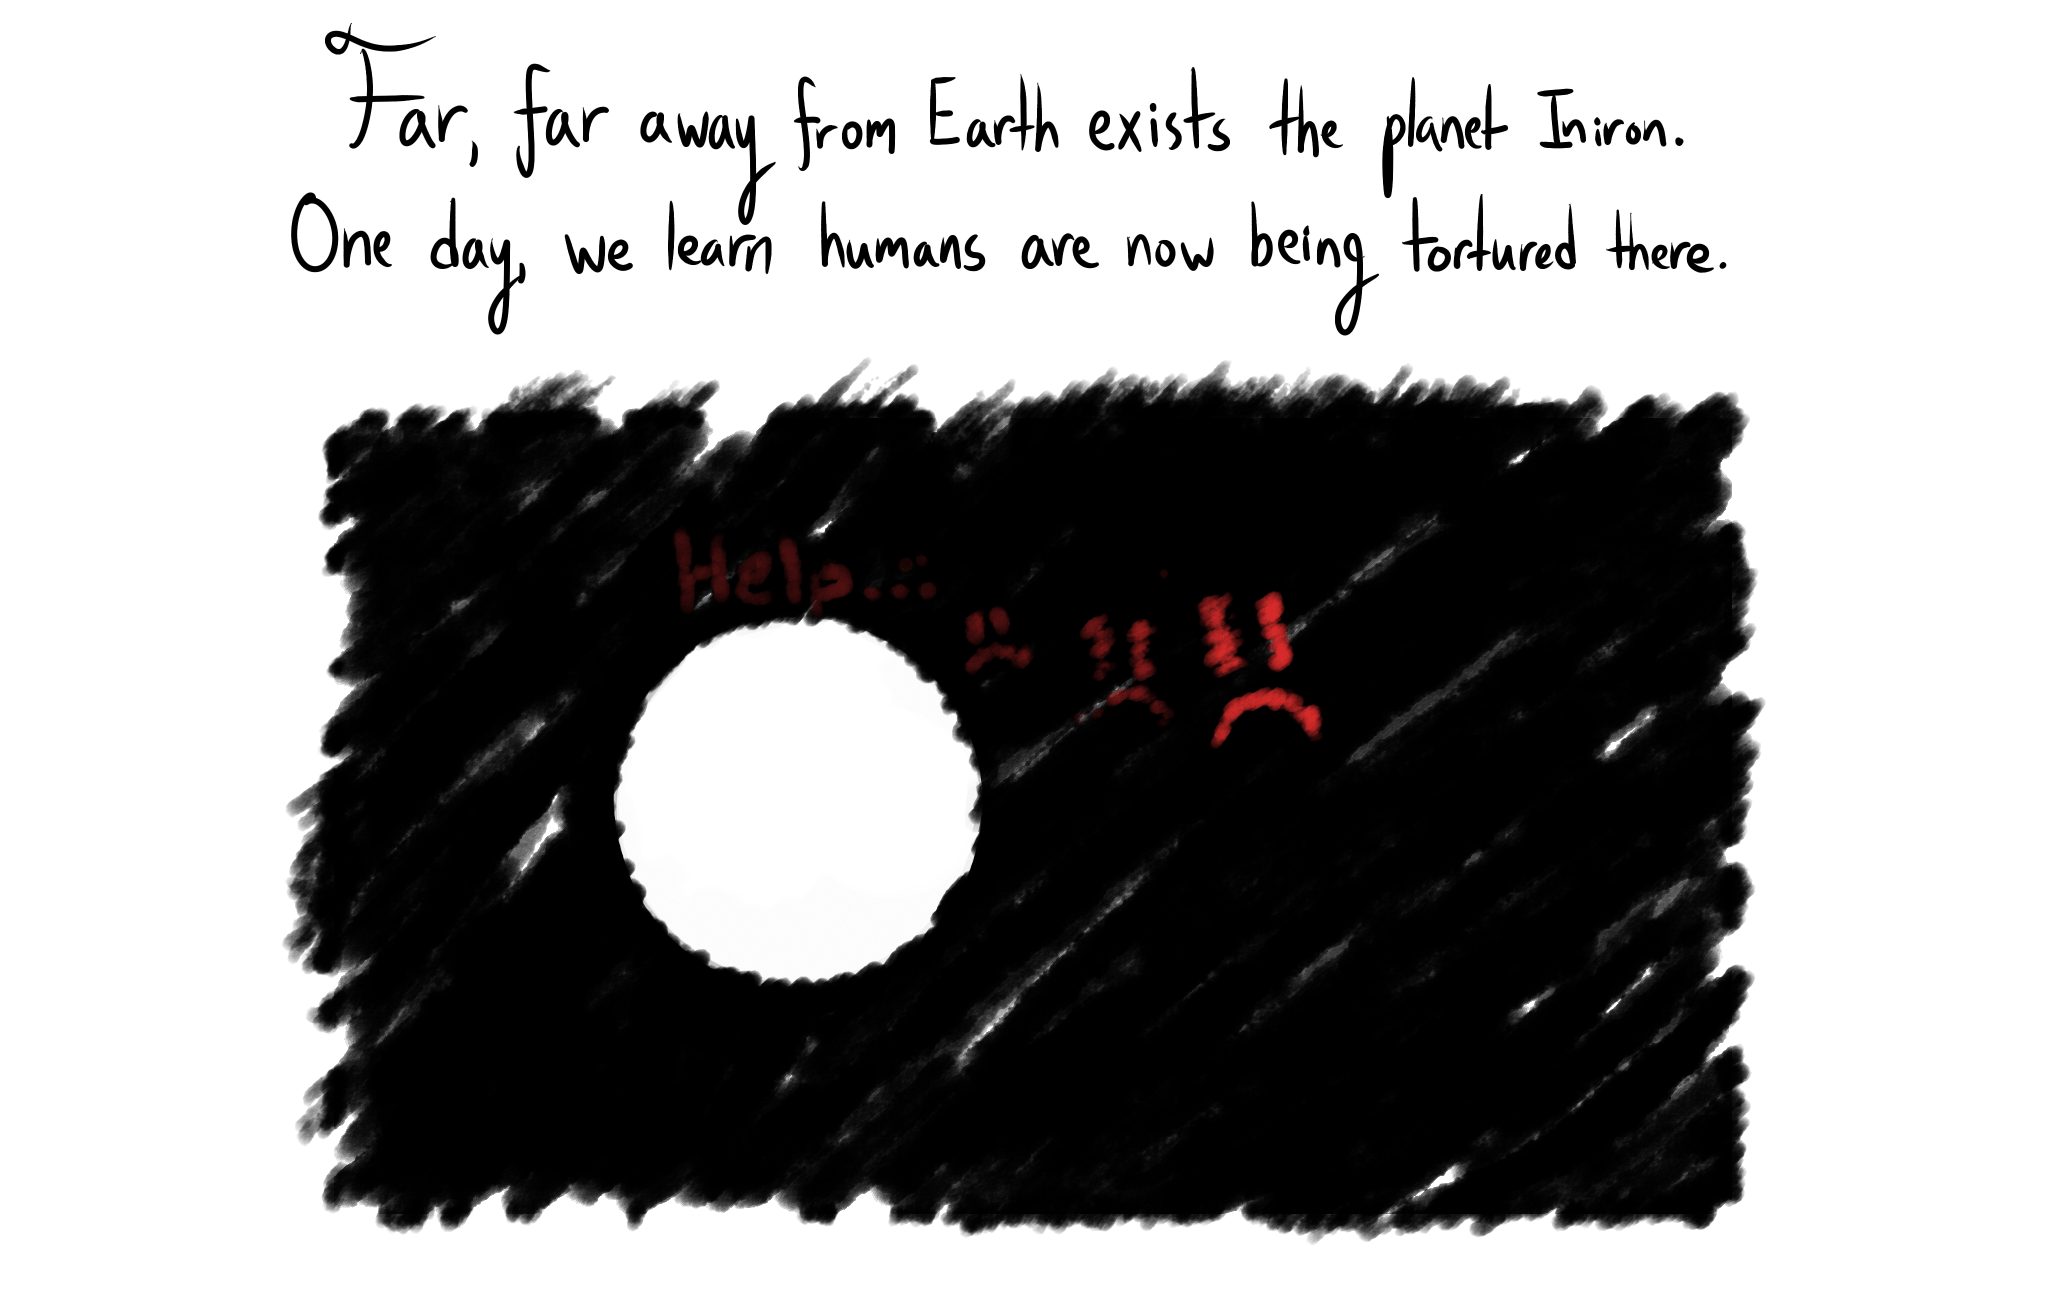 Far, far away from Earth exists the planet Iniron.
One day, we learn humans are now being tortured there.
Help...